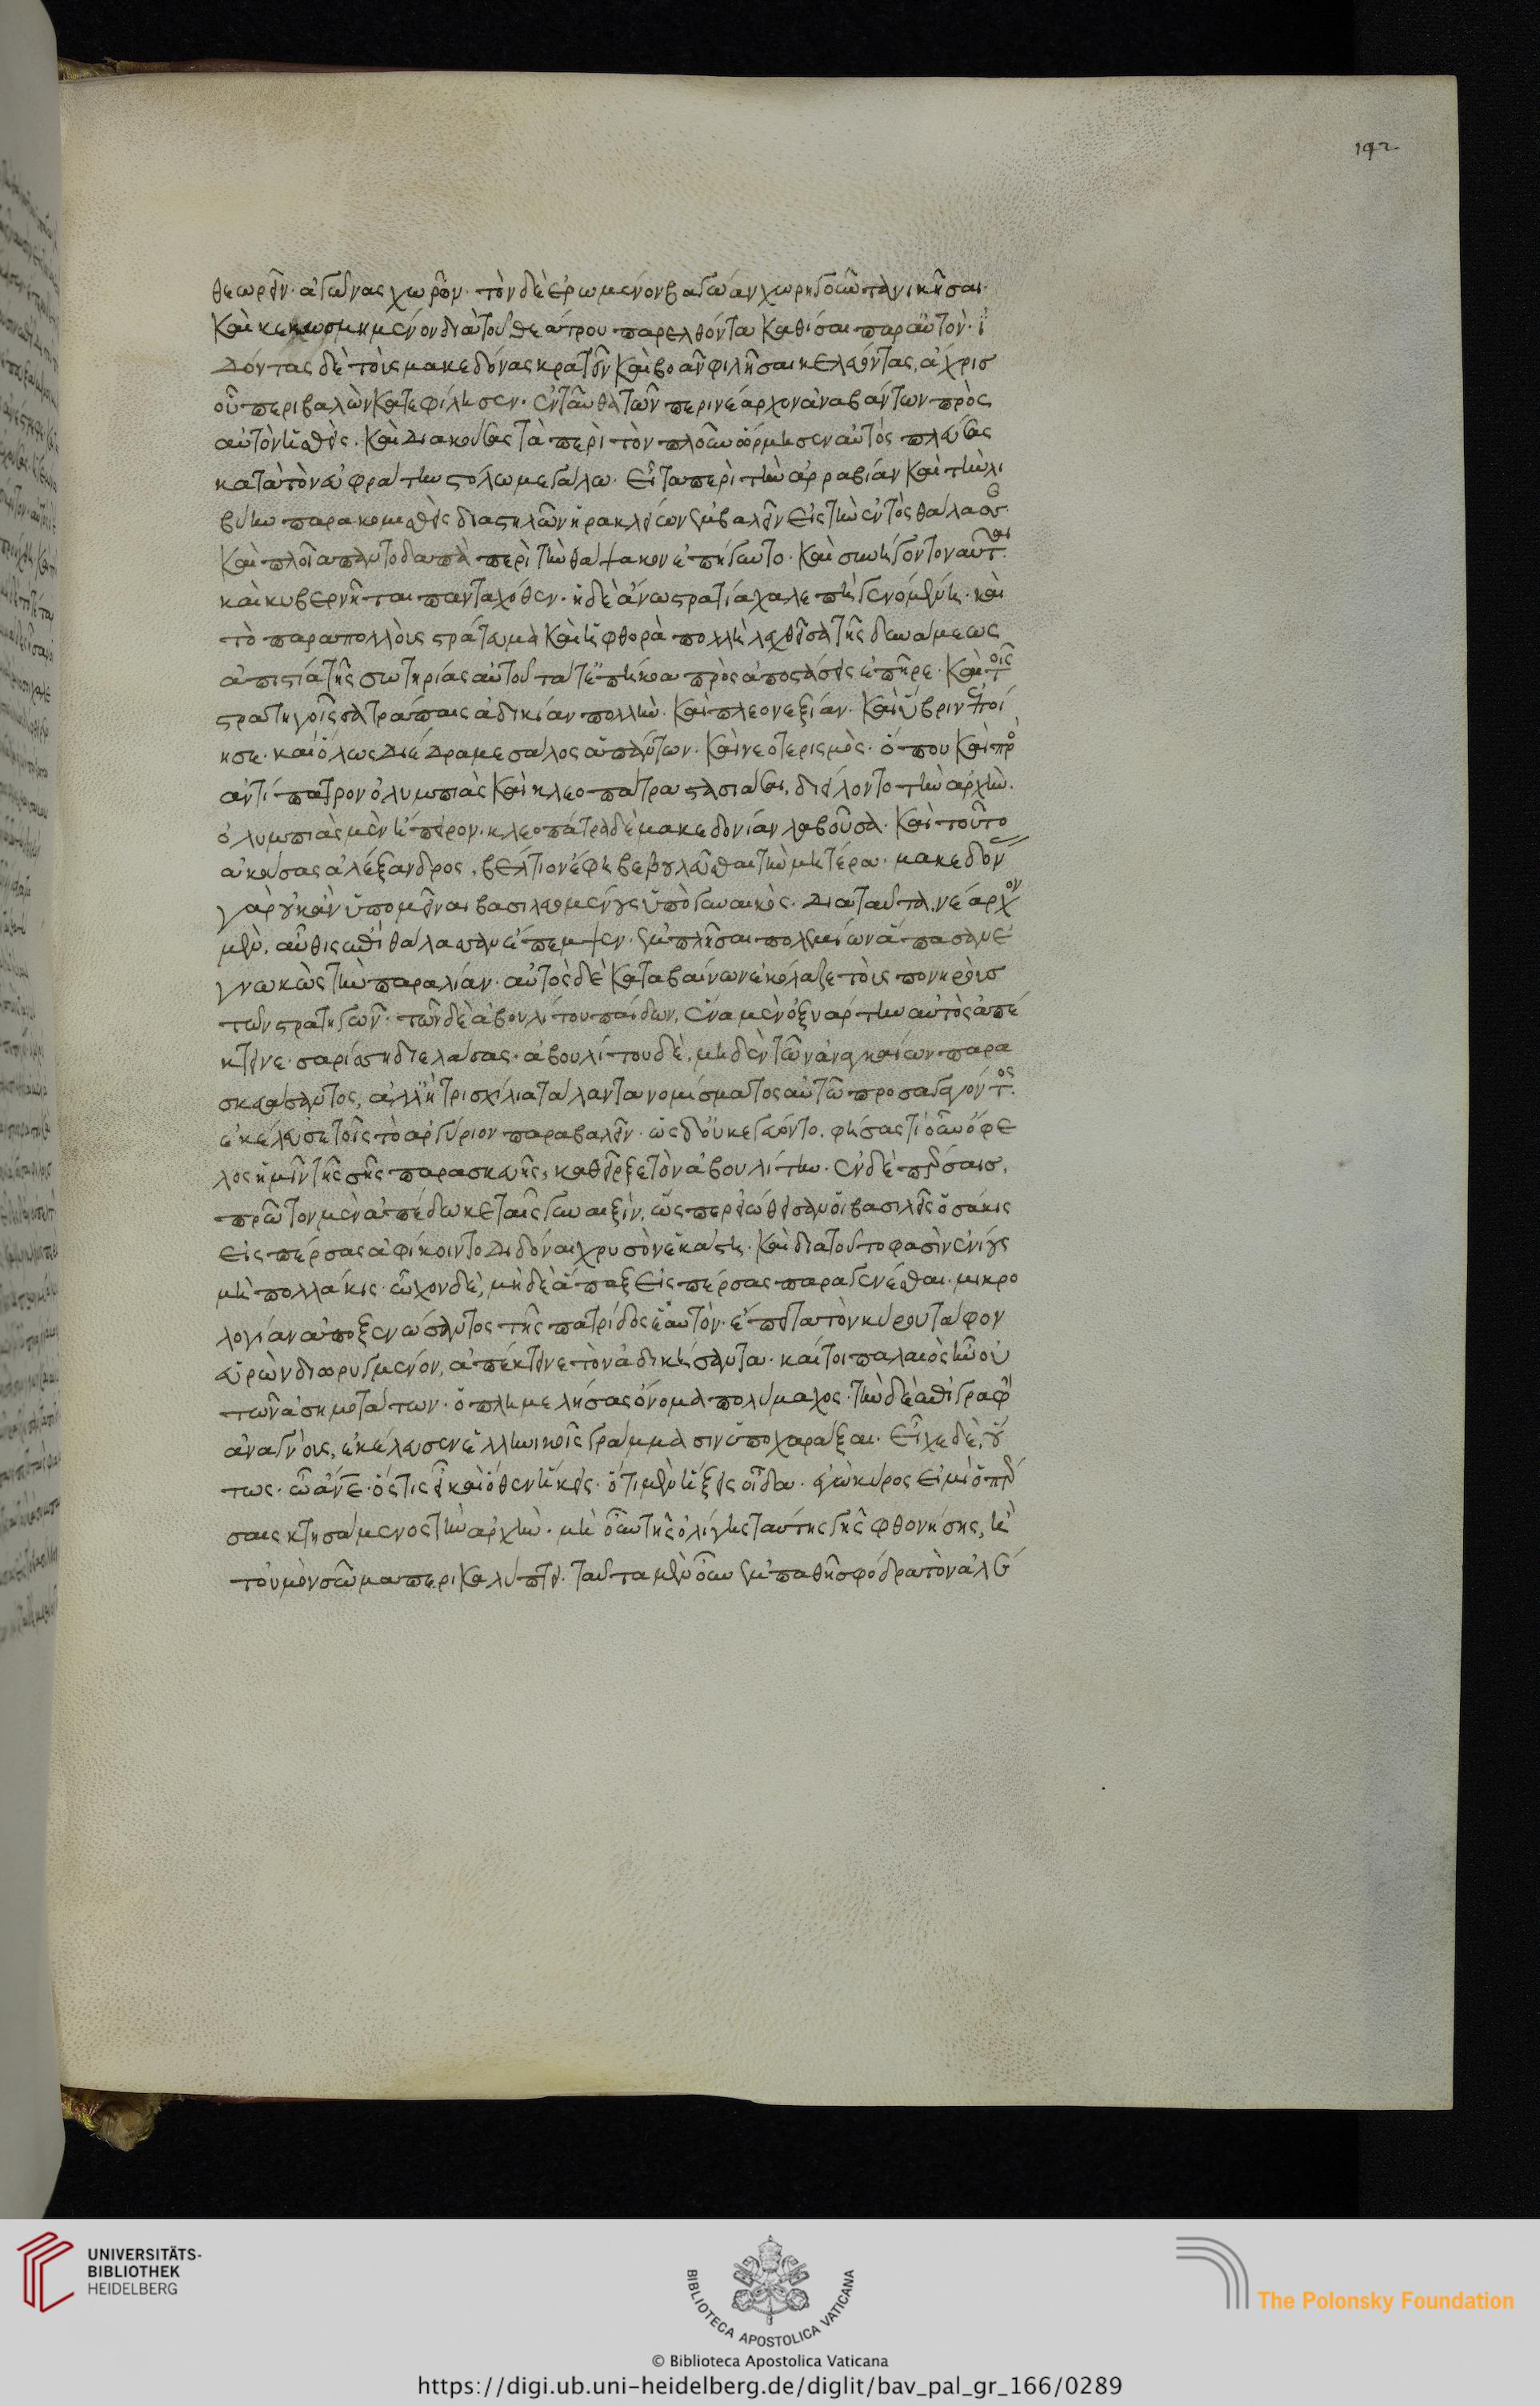 142
θεωρεῖν· ἀγῶνας χωρῶν· τὸν δὲ ἐρωμένον βαγώαν χωρηγοῦντα νικῆσαι·
καὶ κεκοσμημένον διὰ τοῦ θεάτρου παρελθόντα καθίσαι παρ αὐτὸν· ἰ
δόντας δὲ τοὺς μακεδόνας κροτεῖν καὶ βοᾶν φιλῆσαι κελεύοντας, ἄχρις
οὗ περιβαλὼν κατεφίλησεν· ἐνταῦθα τῶν περὶ νέαρχον ἀναβάντων πρὸς
αὐτὸν ἡσθεὶς· καὶ διακούσας τὰ περὶ τὸν πλοῦν ὥρμησεν αὐτὸς πλεύσας
κατὰ τὸν εὐφράτην στόλω μεγάλω· εἶτα περὶ τὴν ἀρραβίαν καὶ τὴν λι
βύην παρακομισθεὶς διὰ στηλῶν ἡρακλείων ἐμβαλεῖν εἰς τὴν ἐντὸς θάλασσ·
καὶ πλοῖα παντοδαπὰ περὶ τὴν θάψακον ἐπήγνυτο· καὶ συνήγοντο ναῦται·
καὶ κυβερνῆται πανταχόθεν· ἡ δὲ ἄνω στρατία χαλεπὴ γενομένη· καὶ
τὸ παρα πολλοὺς τραῦμα καὶ ἡ φθορὰ πολλὴ λεχθεῖσα τῆς δυνάμεως
ἀπιστία τῆς σωτηρίας αὐτοῦ τά τε ὑπήκοα πρὸς ἀποστάσεις ἐπῆρε· καὶ τοῖς
στρατηγοῖς σατράπαις ἀδικίαν πολλὴν· καὶ πλεονεξίαν· καὶ ὕβριν ἐποί
ησε· καὶ ὅλως διέδραμε σάλος ἁπάντων· καὶ νεοτερισμὸς· ὅπου καὶ πρὸ
ἀντίπατρον ὀλυμπιὰς καὶ κλεοπάτρα στασιάσαι, διείλοντο τὴν ἀρχὴν·
ὀλυμπιὰς μὲν ἤπειρον· κλεοπάτρα δὲ μακεδονίαν λαβοῦσα· καὶ τοῦτο
ἀκούσας ἀλέξανδρος, βέλτιον ἔφη βεβουλεῦσθαι τὴν μητέρα· μακεδόν
γὰρ οὐκ ἂν ὑπομεῖναι βασιλευομένους ὑπὸ γυναικὸς· διὰ ταῦτα, νέαρχον
μὲν, αὖθις ἐπὶ θάλασσαν ἔπεμψεν· ἐμπλῆσαι πολεμίων ἅπασαν ἐ
γνωκὼς τὴν παραλίαν· αὐτὸς δὲ καταβαίνων ἐκόλαζε τοὺς πονηροὺς
τῶν στρατηγῶν· τῶν δὲ ἀβουλίτου παίδων, ἕνα μὲν ὀξυάρτην αὐτὸς ἀπέ
κτεινε· σαρίσση διελάσας· ἀβουλίτου δὲ, μηδὲν τῶν ἀναγκαίων παρα
σκευάσαντος, ἀλλ ἢ τρισχίλια τάλαντα νομίσματος αὐτῶ προσαγαγόντος·
ἐκέλευσε τοῖς τὸ ἀργύριον παραβαλεῖν· ὡς δ' οὐκ ἐγεύοντο· φήσας τί οὖν ὄφε
λος ἡμῖν τῆς σῆς παρασκευῆς, καθεῖρξε τὸν ἀβουλίτην· ἐν δὲ πέρσαις,
πρῶτον μὲν ἀπέδωκε ταῖς γυναιξὶν, ὥσπερ εἰώθεισαν οἱ βασιλεῖς ὁσάκις
εἰς πέρσας ἀφίκοιντο διδόναι χρυσὸν ἑκάστη· καὶ διὰ τοῦτο φασὶν ἐνίους
μὴ πολλάκις· ὦχον δὲ, μηδὲ ἅπαξ εἰς πέρσας παραγενέσθαι· μικρο
λογίαν ἀποξενώσαντος τῆς πατρίδος ἑαυτὸν· ἔπειτα τὸν κύρου τάφον
εὑρὼν διορυγμένον, ἀπέκτεινε τὸν ἀδικήσαντα· καίτοι παλαιὸς ἦν οὐ
τῶν ἀσημοτάτων· ὁ πλημελήσας ὄνομα πολύμαχος· τὴν δὲ ἐπιγραφὴ
ἀναγνοὺς, ἐκέλευσεν ἑλληνικοῖς γράμμασιν ὑποχαράξαι· εἶχε δὲ, οὕ
τως· ὦ ἄνε· ὅστις εἶ καὶ ὅθεν ἥκεις· ὅτι μὲν ἥξεις οἶδα· ἐγὼ κύρος εἰμὶ ὁ πέρ
σαις κτησάμενος τὴν ἀρχὴν· μὴ οὖν τῆς ὀλίγης ταύτης γῆς φθονήσης, ἣ
τοὐμὸν σῶμα περικαλύπτει· ταῦτα μὲν οὖν ἐμπαθῆ σφόδρα τὸν ἀλέ
UNIVERSITÄTS-
BIBLIOTHEK
HEIDELBERG
BIBLIOTECA APOSTOLICA VATICANA
The Polonsky Foundation
© Biblioteca Apostolica Vaticana
https://digi.ub.uni-heidelberg.de/diglit/bav_pal_gr_166/0289